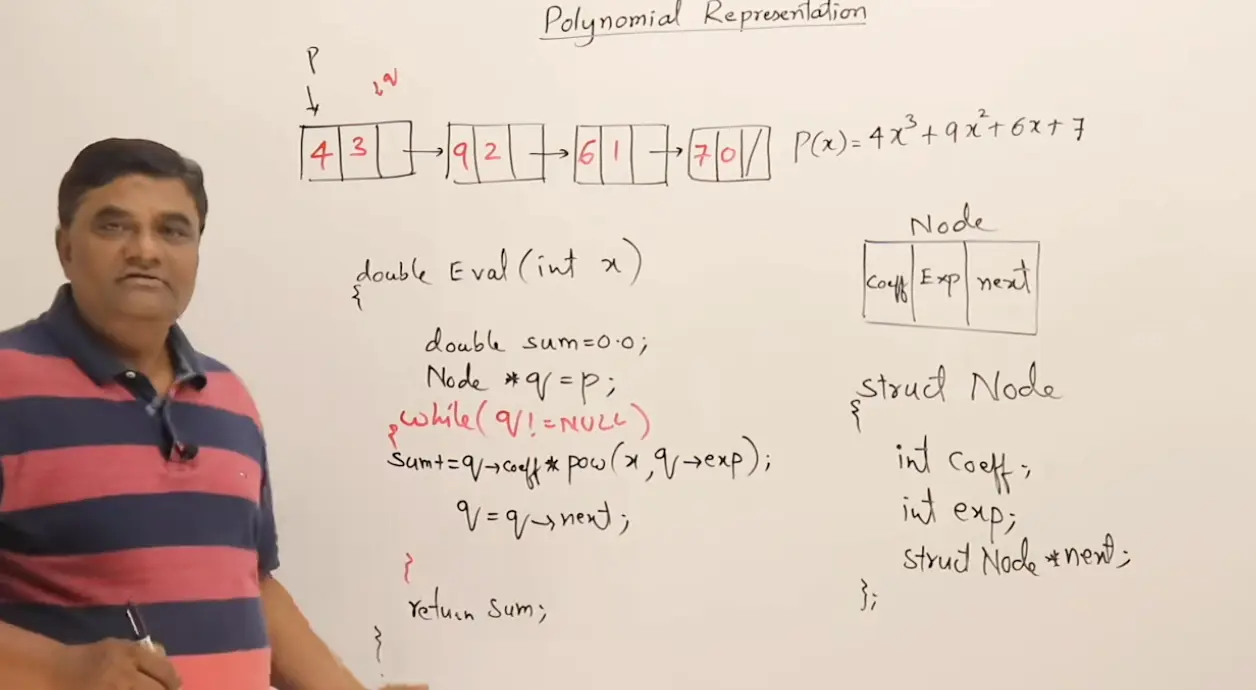 Polynomial Representation
P
q
4 3
9 2
6 1
7 0 /
P(x) = 4x³ + 9x² + 6x + 7
Node
Coeff Exp next
double Eval(int x)
{
double sum=0.0;
Node *q=p;
{while(q!=NULL)
sum+=q→coeff*pow(x,q→exp);
q=q→next;
}
return sum;
}
struct Node
{
int coeff;
int exp;
struct Node *next;
};